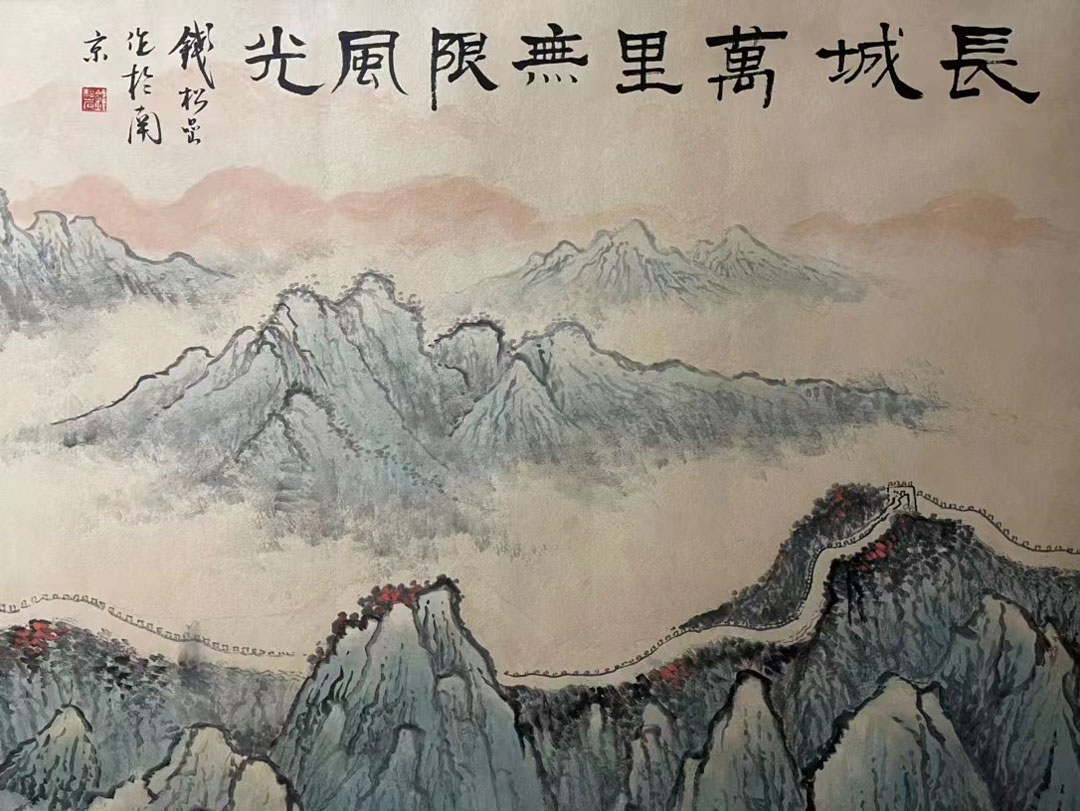 長城萬里無限風光
錢松喦
作於南
京